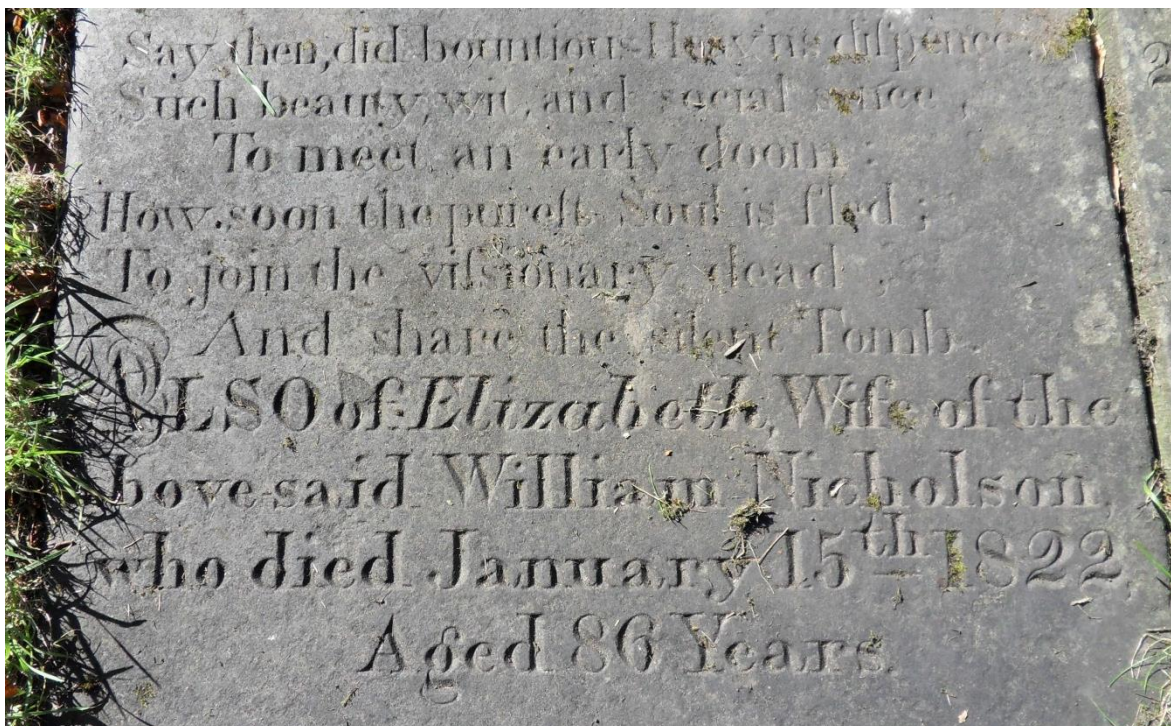 Say then, did bountious Heav'ns diſpence,
Such beauty, wit, and social sence,
To meet an early doom:
How soon the pureſt Soul is fled;
To join the viſsionary dead,
And share the silent Tomb.
ALSO of Elizabeth, Wife of the
bove-said William Nicholson,
who died January 15th 1822,
Aged 86 Years.
2